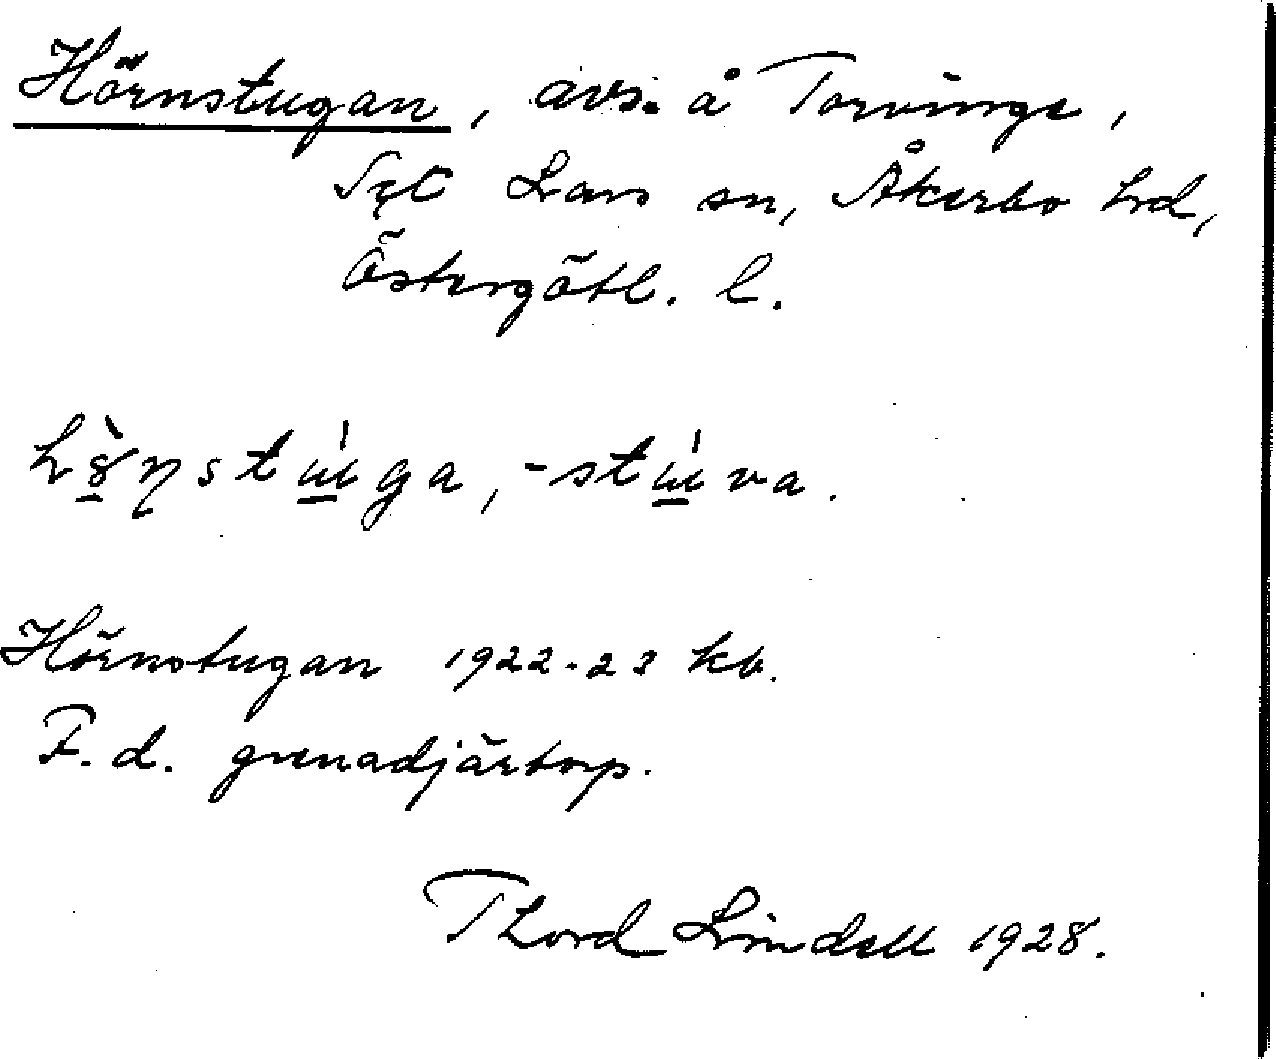 Hörnstugan, avs. å Torvinge,
S:t Lars sn, Åkerbo hrd,
Östergötl. l.
-stu̱va.
Hörnstugan 1922-23 kb.
F. d. grenadjärtorp.
Thord Lindell 1928.